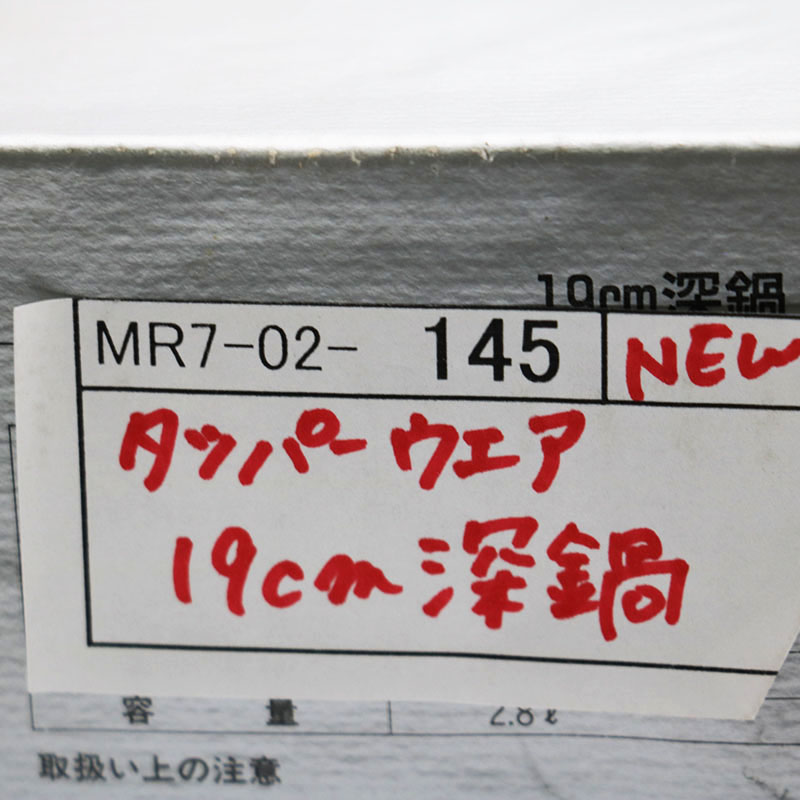 19cm深鍋
MR7-02- 145 NEW
タッパーウエア
19cm 深鍋
容 量 2.8ℓ
取扱い上の注意